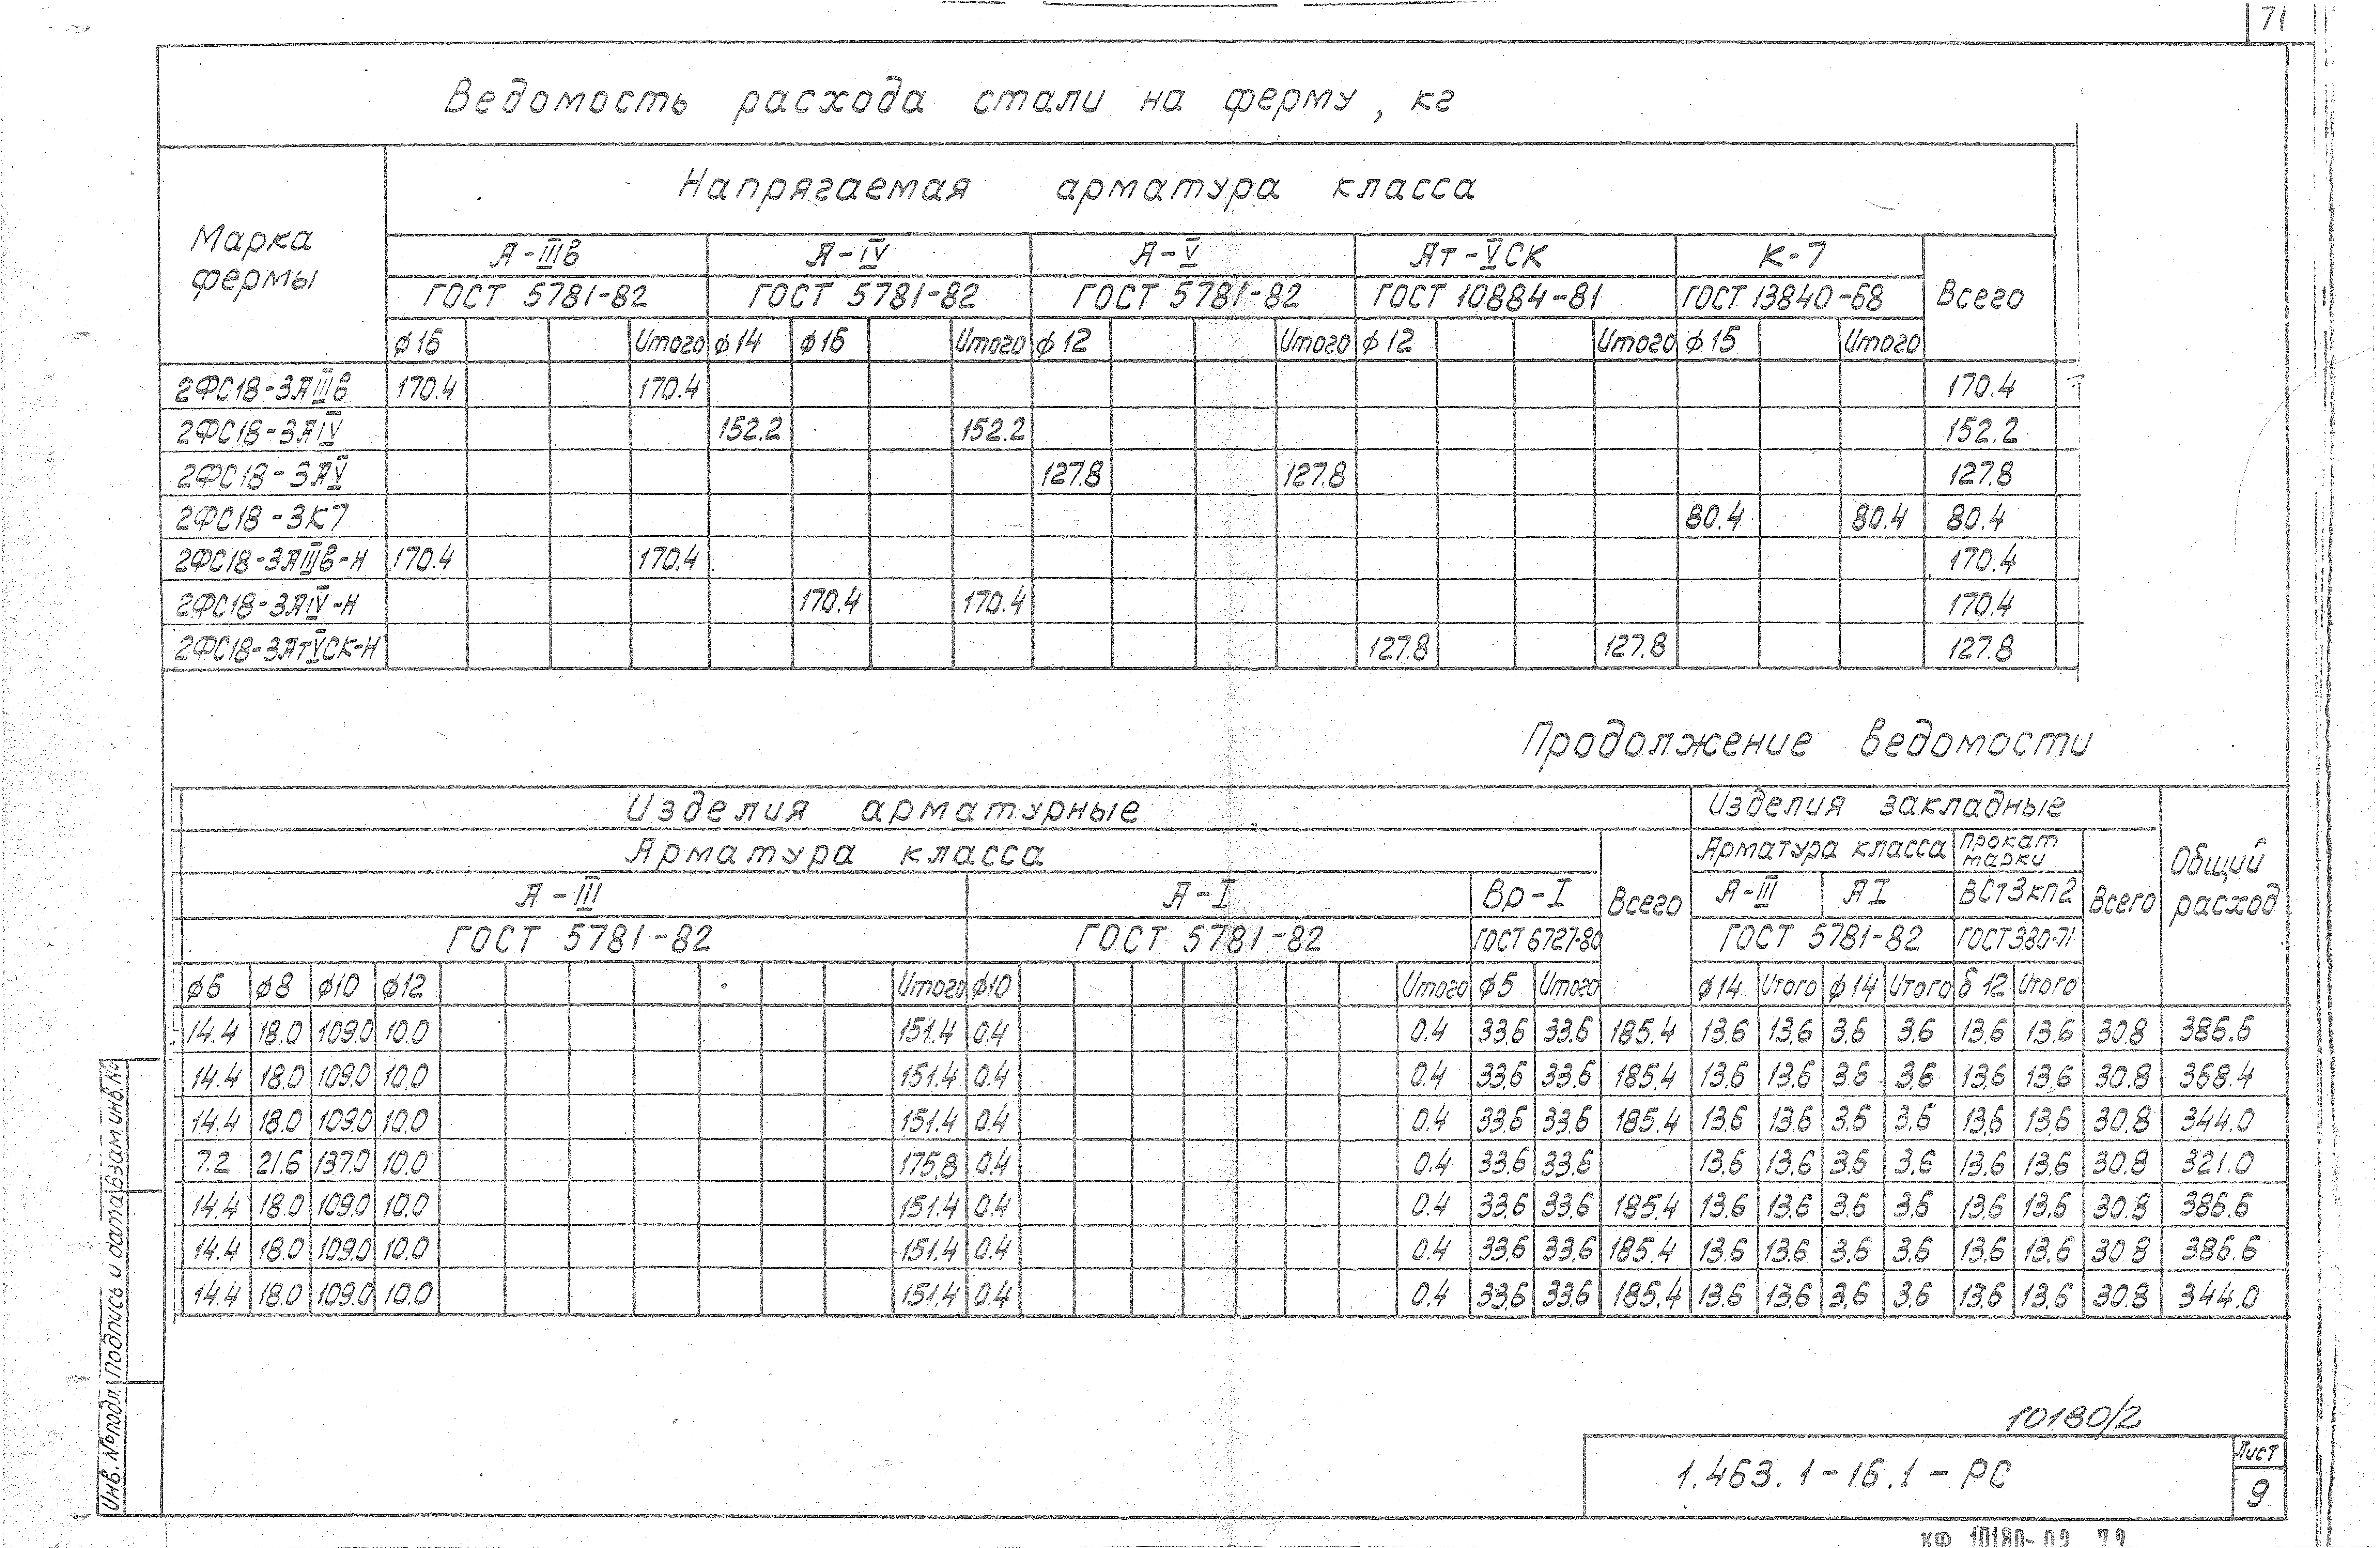 71
Ведомость расхода стали на ферму, кг
Марка фермы
Напрягаемая арматура класса
А-IIIв А-IV А-V Ат-VСК К-7 Всего
ГОСТ 5781-82 ГОСТ 5781-82 ГОСТ 5781-82 ГОСТ 10884-81 ГОСТ 13840-68
ф16 Итого ф14 ф16 Итого ф12 Итого ф12 Итого ф15 Итого
2ФС18-3АIIIв 170.4 170.4 170.4
2ФС18-3АIV 152.2 152.2 152.2
2ФС18-3АV 127.8 127.8 127.8
2ФС18-3К7 80.4 80.4 80.4
2ФС18-3АIIIв-Н 170.4 170.4 170.4
2ФС18-3АIV-Н 170.4 170.4 170.4
2ФС18-3АтVСК-Н 127.8 127.8 127.8
Продолжение ведомости
Изделия арматурные Изделия закладные Общий расход
Арматура класса Всего Арматура класса Прокат марки Всего
А-III А-I Вр-I А-III АI ВСт3кп2
ГОСТ 5781-82 ГОСТ 5781-82 ГОСТ 6727-80 ГОСТ 5781-82 ГОСТ 380-71
ф6 ф8 ф10 ф12 Итого ф10 Итого ф5 Итого ф14 Итого ф14 Итого δ12 Итого
14.4 18.0 109.0 10.0 151.4 0.4 0.4 33.6 33.6 185.4 13.6 13.6 3.6 3.6 13.6 13.6 30.8 386.6
14.4 18.0 109.0 10.0 151.4 0.4 0.4 33.6 33.6 185.4 13.6 13.6 3.6 3.6 13.6 13.6 30.8 368.4
14.4 18.0 109.0 10.0 151.4 0.4 0.4 33.6 33.6 185.4 13.6 13.6 3.6 3.6 13.6 13.6 30.8 344.0
7.2 21.6 137.0 10.0 175.8 0.4 0.4 33.6 33.6 13.6 13.6 3.6 3.6 13.6 13.6 30.8 321.0
14.4 18.0 109.0 10.0 151.4 0.4 0.4 33.6 33.6 185.4 13.6 13.6 3.6 3.6 13.6 13.6 30.8 386.6
14.4 18.0 109.0 10.0 151.4 0.4 0.4 33.6 33.6 185.4 13.6 13.6 3.6 3.6 13.6 13.6 30.8 386.6
14.4 18.0 109.0 10.0 151.4 0.4 0.4 33.6 33.6 185.4 13.6 13.6 3.6 3.6 13.6 13.6 30.8 344.0
Инв. № подл. Подпись и дата Взам. инв. №
10180/2
1.463.1-16.1-РС
Лист
9
КФ 10180-02 72